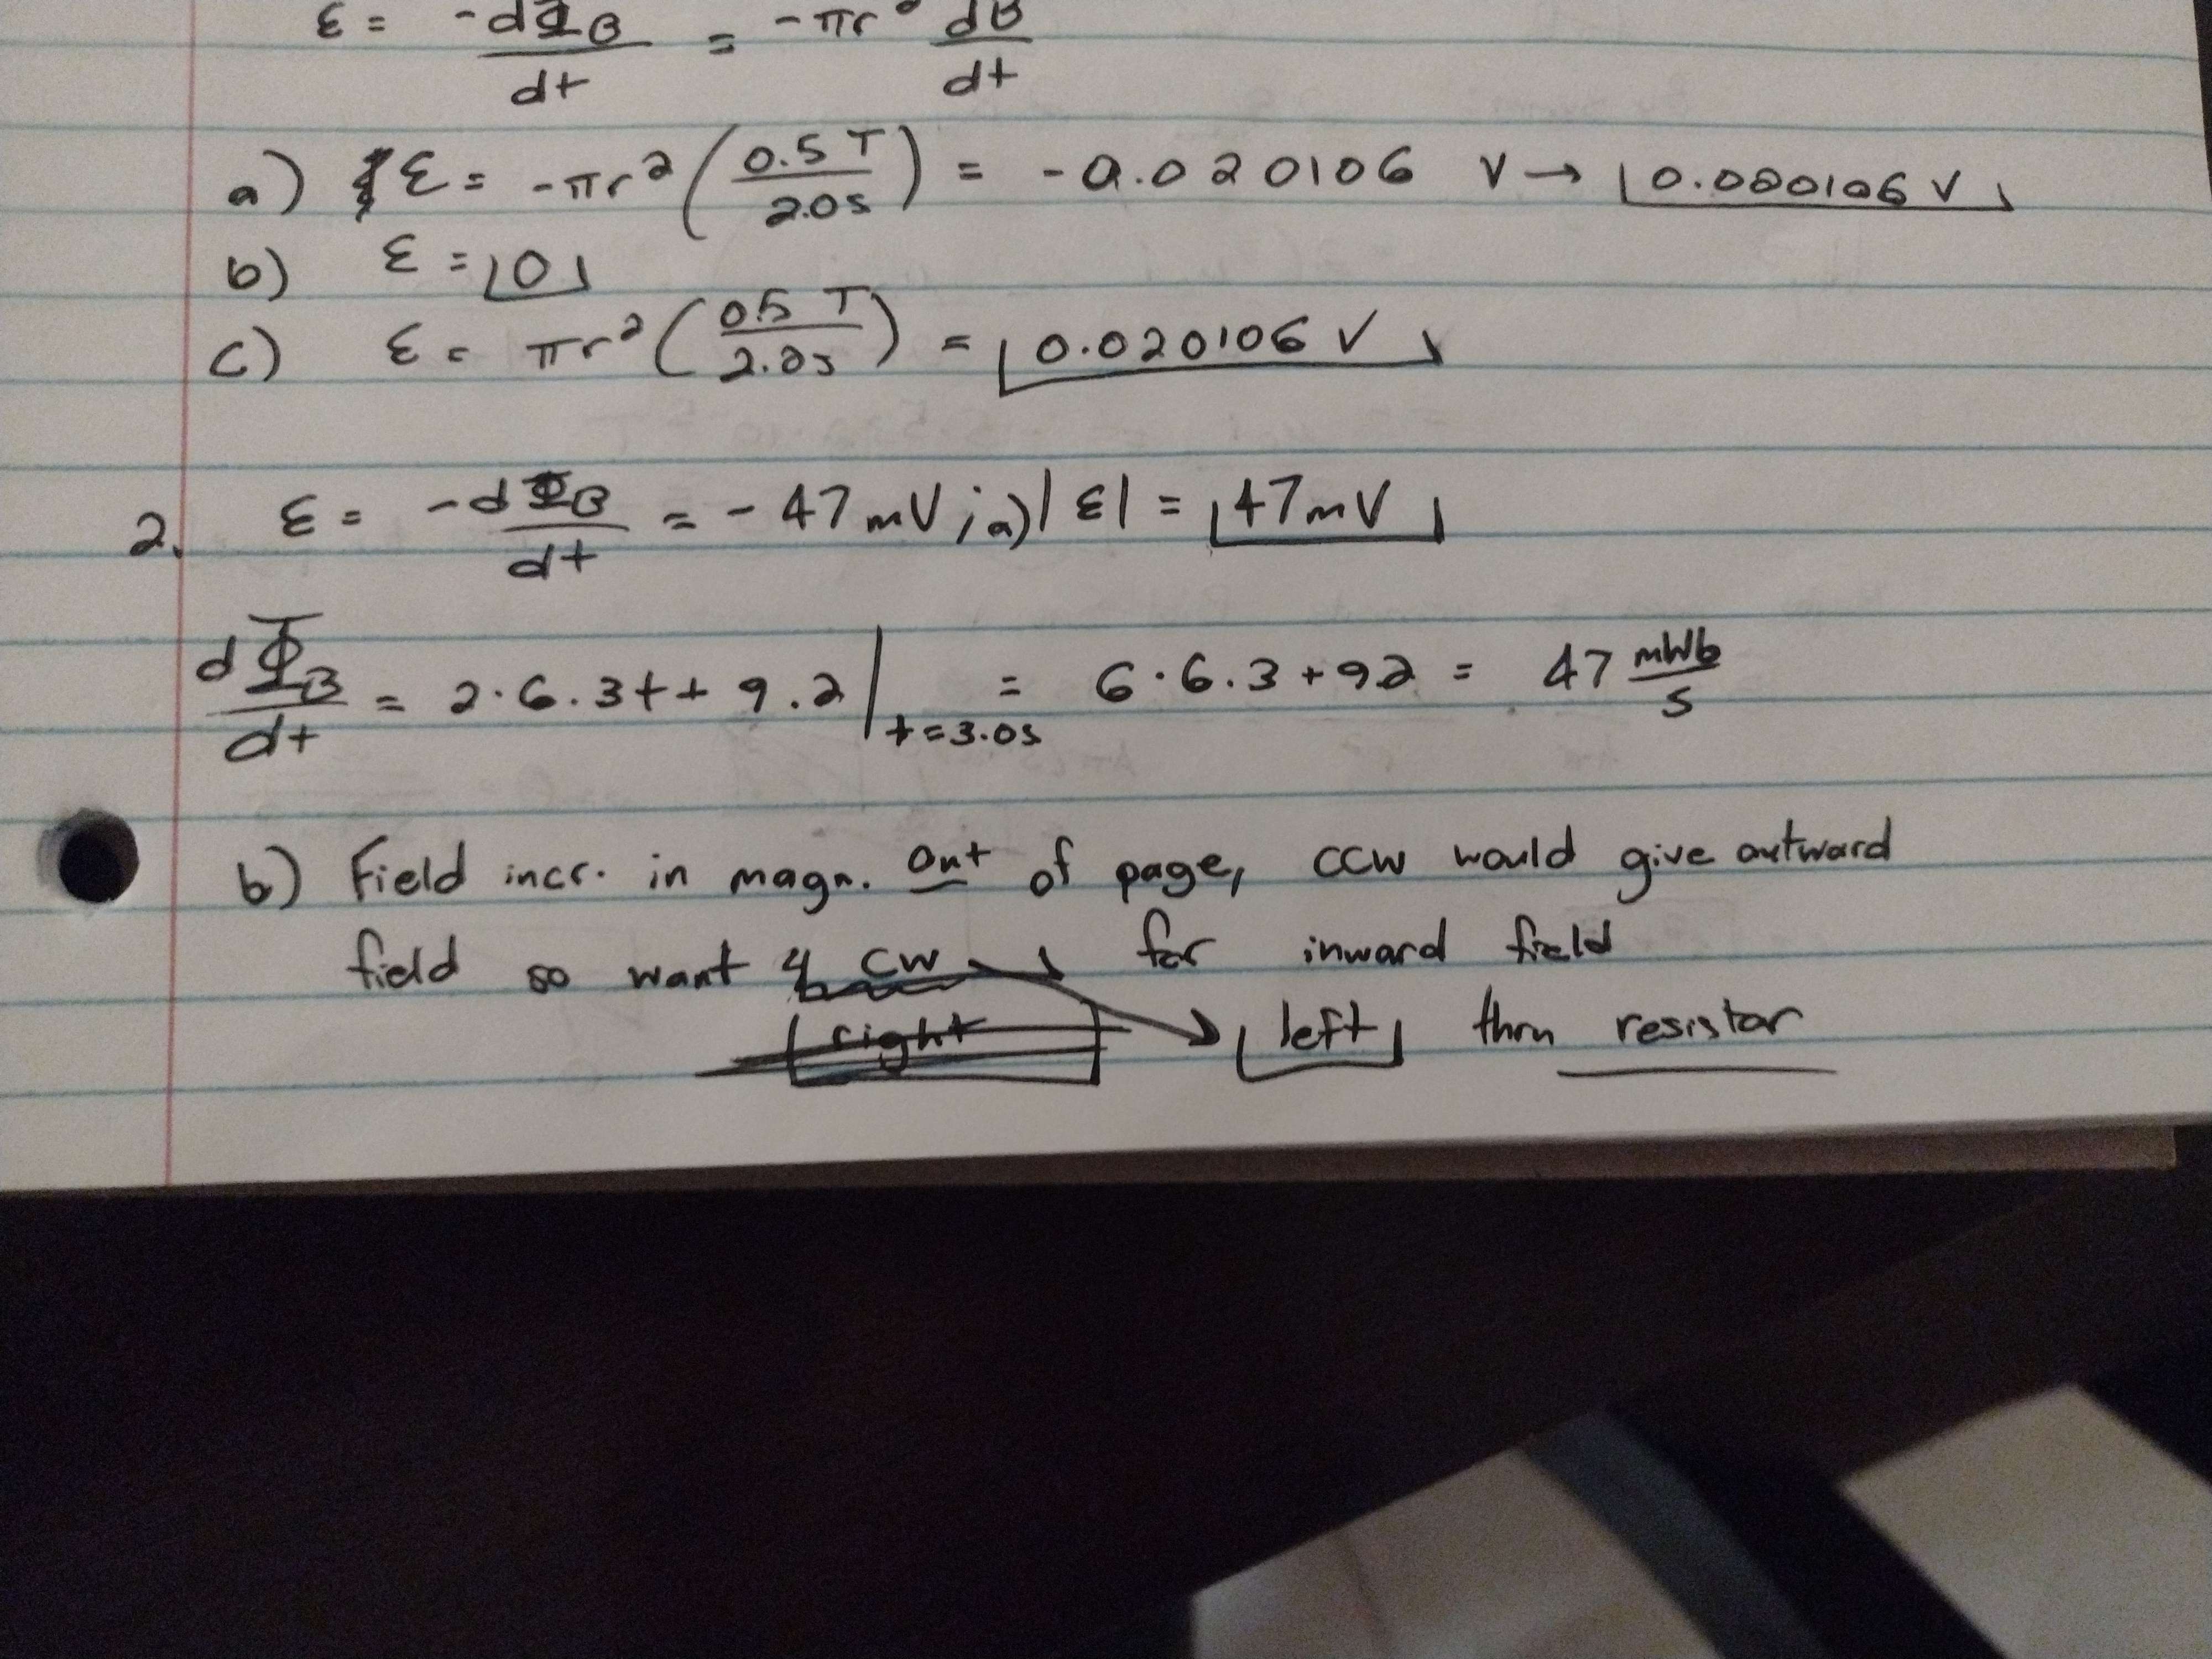 ε = -dΦB/dt = -πr² dB/dt
a) ε = -πr² (0.5 T / 2.0s) = -0.020106 V → 0.000106 V
b) ε = 0
c) ε = πr² (0.5 T / 2.0s) = 0.020106 V
2. ε = -dΦB/dt = -47 mV ; a) |ε| = 47mV
dΦB/dt = 2·6.3t + 9.2 | t=3.0s = 6·6.3+92 = 47 mWb/s
b) Field incr. in magn. out of page, CCW would give outward
field so want CW for inward field
right left thru resistor